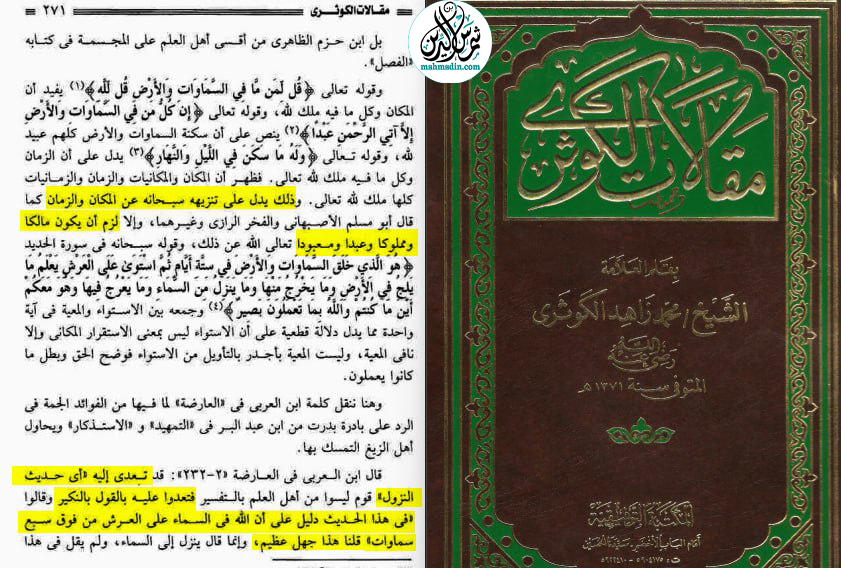 مقالات الكوثرى ٢٧١
بل ابن حزم الظاهرى من أقسى أهل العلم على المجسمة فى كتابه
«الفصل».
وقوله تعالى ﴿قُل لِّمَن مَّا فِي السَّمَاوَاتِ وَالأَرْضِ قُل لِّلَّهِ﴾(١) يفيد أن
المكان وكل ما فيه ملك لله، وقوله تعالى ﴿إِن كُلُّ مَن فِي السَّمَاوَاتِ وَالأَرْضِ
إِلاَّ آتِي الرَّحْمَنِ عَبْدًا﴾(٢) ينص على أن سكنة السماوات والأرض كلهم عبيد
لله، وقوله تعالى ﴿وَلَهُ مَا سَكَنَ فِي اللَّيْلِ وَالنَّهَارِ﴾(٣) يدل على أن الزمان
وكل ما فيه ملك لله تعالى. فظهر أن المكان والمكانيات والزمان والزمانيات
كلها ملك لله تعالى. وذلك يدل على تنزيهه سبحانه عن المكان والزمان كما
قال أبو مسلم الأصبهانى والفخر الرازى وغيرهما، وإلا لزم أن يكون مالكا
ومملوكا وعبدا ومعبودا تعالى الله عن ذلك، وقوله سبحانه فى سورة الحديد
﴿هُوَ الَّذِي خَلَقَ السَّمَاوَاتِ وَالأَرْضَ فِي سِتَّةِ أَيَّامٍ ثُمَّ اسْتَوَىٰ عَلَى الْعَرْشِ يَعْلَمُ مَا
يَلِجُ فِي الأَرْضِ وَمَا يَخْرُجُ مِنْهَا وَمَا يَنزِلُ مِنَ السَّمَاءِ وَمَا يَعْرُجُ فِيهَا وَهُوَ مَعَكُمْ
أَيْنَ مَا كُنتُمْ وَاللَّهُ بِمَا تَعْمَلُونَ بَصِيرٌ﴾(٤) وجمعه بين الاستواء والمعية فى آية
واحدة مما يدل دلالة قطعية على أن الاستواء ليس بمعنى الاستقرار المكانى وإلا
نافى المعية، وليست المعية بأجدر بالتأويل من الاستواء فوضح الحق وبطل ما
كانوا يعملون.
وهنا ننقل كلمة ابن العربى فى «العارضة» لما فيها من الفوائد الجمة فى
الرد على بادرة بدرت من ابن عبد البر فى «التمهيد» و «الاستذكار» ويحاول
أهل الزيغ التمسك بها.
قال ابن العربى فى العارضة «٢-٢٣٢»: قد تعدى إليه «أى حديث
النزول» قوم ليسوا من أهل العلم بالتفسير فتعدوا عليه بالقول بالنكير وقالوا
«فى هذا الحديث دليل على أن الله فى السماء على العرش من فوق سبع
سماوات» قلنا هذا جهل عظيم، وإنما قال ينزل إلى السماء، ولم يقل فى هذا
شمس الدين
mahmsdin.com
مقالات الكوثري
بقلم العلامة
الشيخ/محمد زاهد الكوثرى
رضى الله عنه
المتوفى سنة ١٣٧١ هـ
المكتبة التوفيقية
أمام الباب الأخضر - سيدنا الحسين